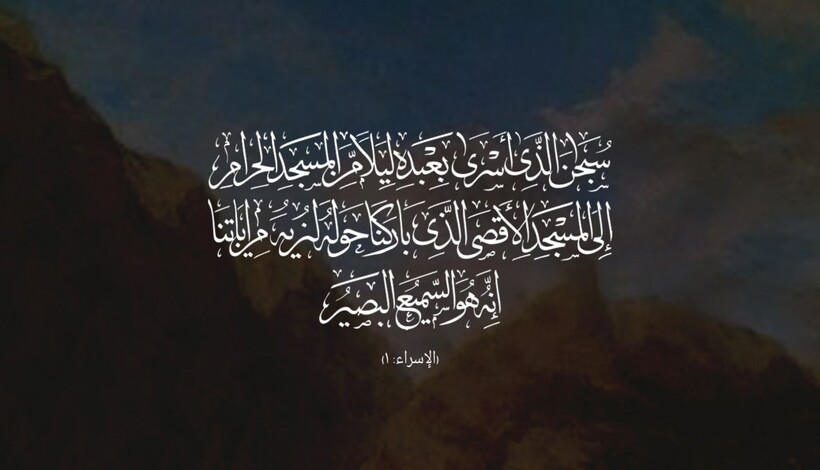 سُبْحَٰنَ الَّذِي أَسْرَىٰ بِعَبْدِهِ لَيْلًا مِنَ الْمَسْجِدِ الْحَرَامِ
إِلَى الْمَسْجِدِ الْأَقْصَى الَّذِي بَارَكْنَا حَوْلَهُ لِنُرِيَهُ مِنْ آيَاتِنَا
إِنَّهُ هُوَ السَّمِيعُ الْبَصِيرُ
(الإسراء: ١)